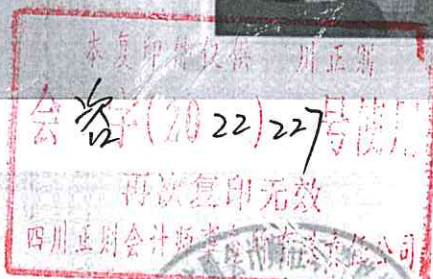 本复印件仅供 川正则
会咨字(2022)227号使用
再次复印无效
四川正则会计师事务所有限责任公司